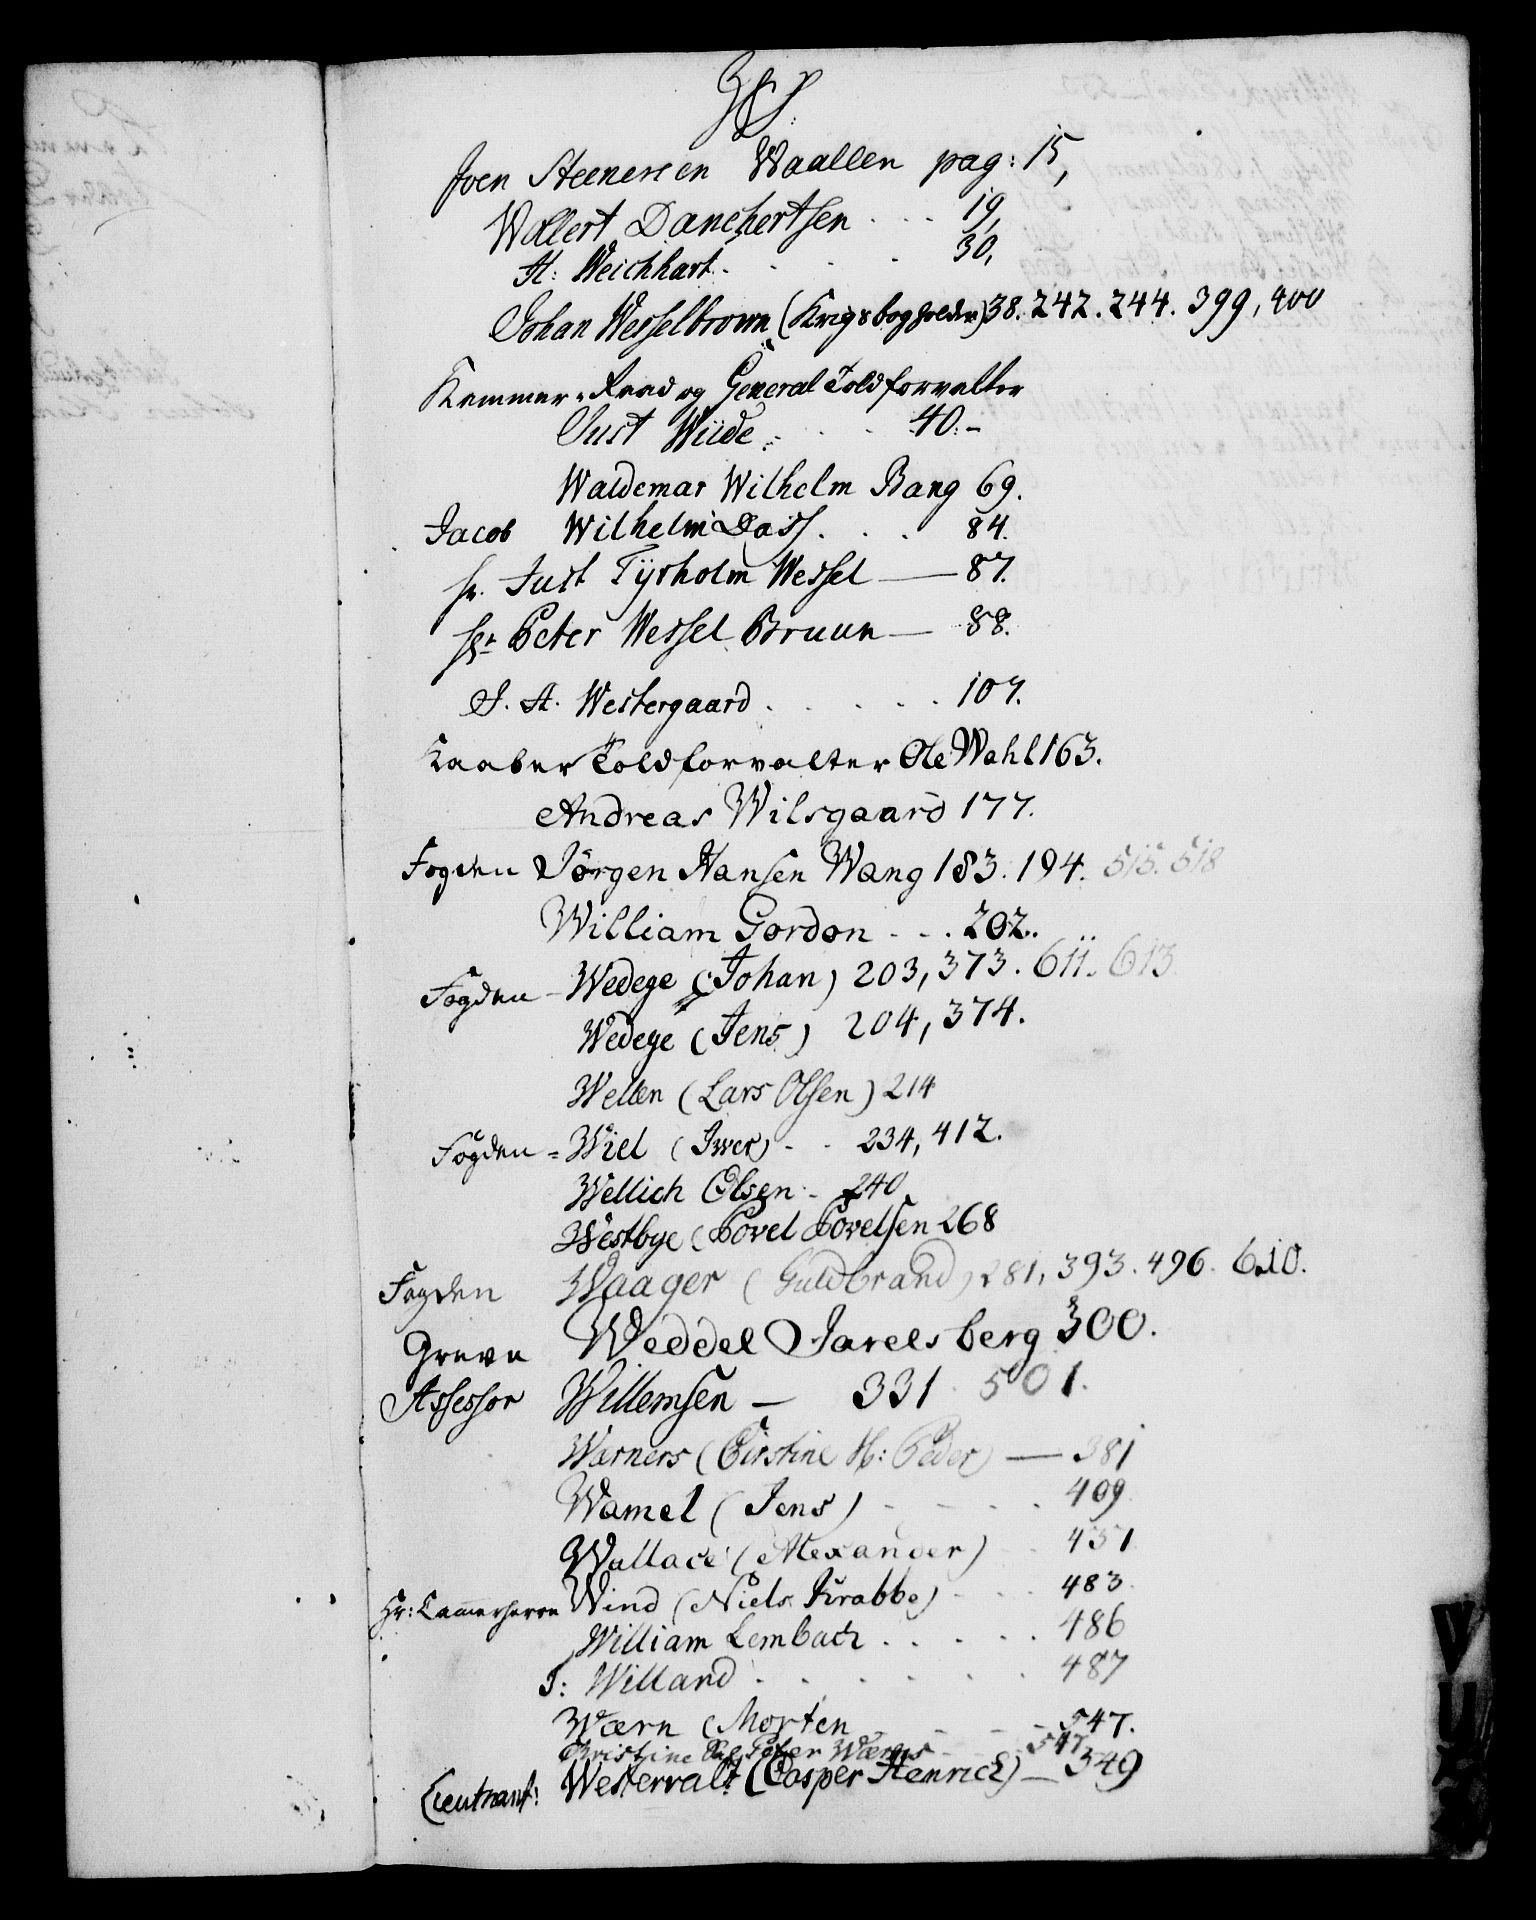 W.
Joen Steenersen Waallen pag: 15,
Wollert Danchertsen . . . 19,
H: Weichhart . . . . 30,
Johan Wesselbrown (Krigsbogholder) 38. 242. 244. 399, 400
Kammer-Raad og General Toldforvalter
Just Wiide . . . 40.-
Waldemar Wilhelm Bang 69.
Jacob Wilhelm Dass . . . 84.
hr. Just Tyrholm Wessel — 87.
Hr. Peter Wessel Bruun — 88.
J. A. Westergaard . . . . . 107.
Toldforvalter Ole Wahl 163.
Andreas Wilsgaard 177.
Fogden Jörgen Hansen Wang 183. 194. 515. 518
William Gordon . . . 202.
Fogden - Wedege (Johan) 203, 373. 611. 613
Wedege (Jens) 204, 374.
Wellen (Lars Olsen) 214
Fogden = Wiel (Iwer) - - 234, 412.
Wellich Olsen - 240
Westbye (Povel Povelsen 268
Fogden Waager (Guldbrand) 281, 393. 496. 610.
Greve Weddel Jarelsberg 300.
Assessor Willemsen — 331 501.
Warners (Kirstine H: Peder) — 381
Wamel (Jens) - - - . 409
Wallace (Alexander) - . 451
Hr: Cammerherre Wind (Niels Krabbe) - . . 483
William Lembach . . . . . 486
J: Willand . . . . . . 487
Wærn (Morten - - - - 547.
Christine Peder Wærns - - 547
Lieutnant: Westervalt (Casper Henrich) — 549
V